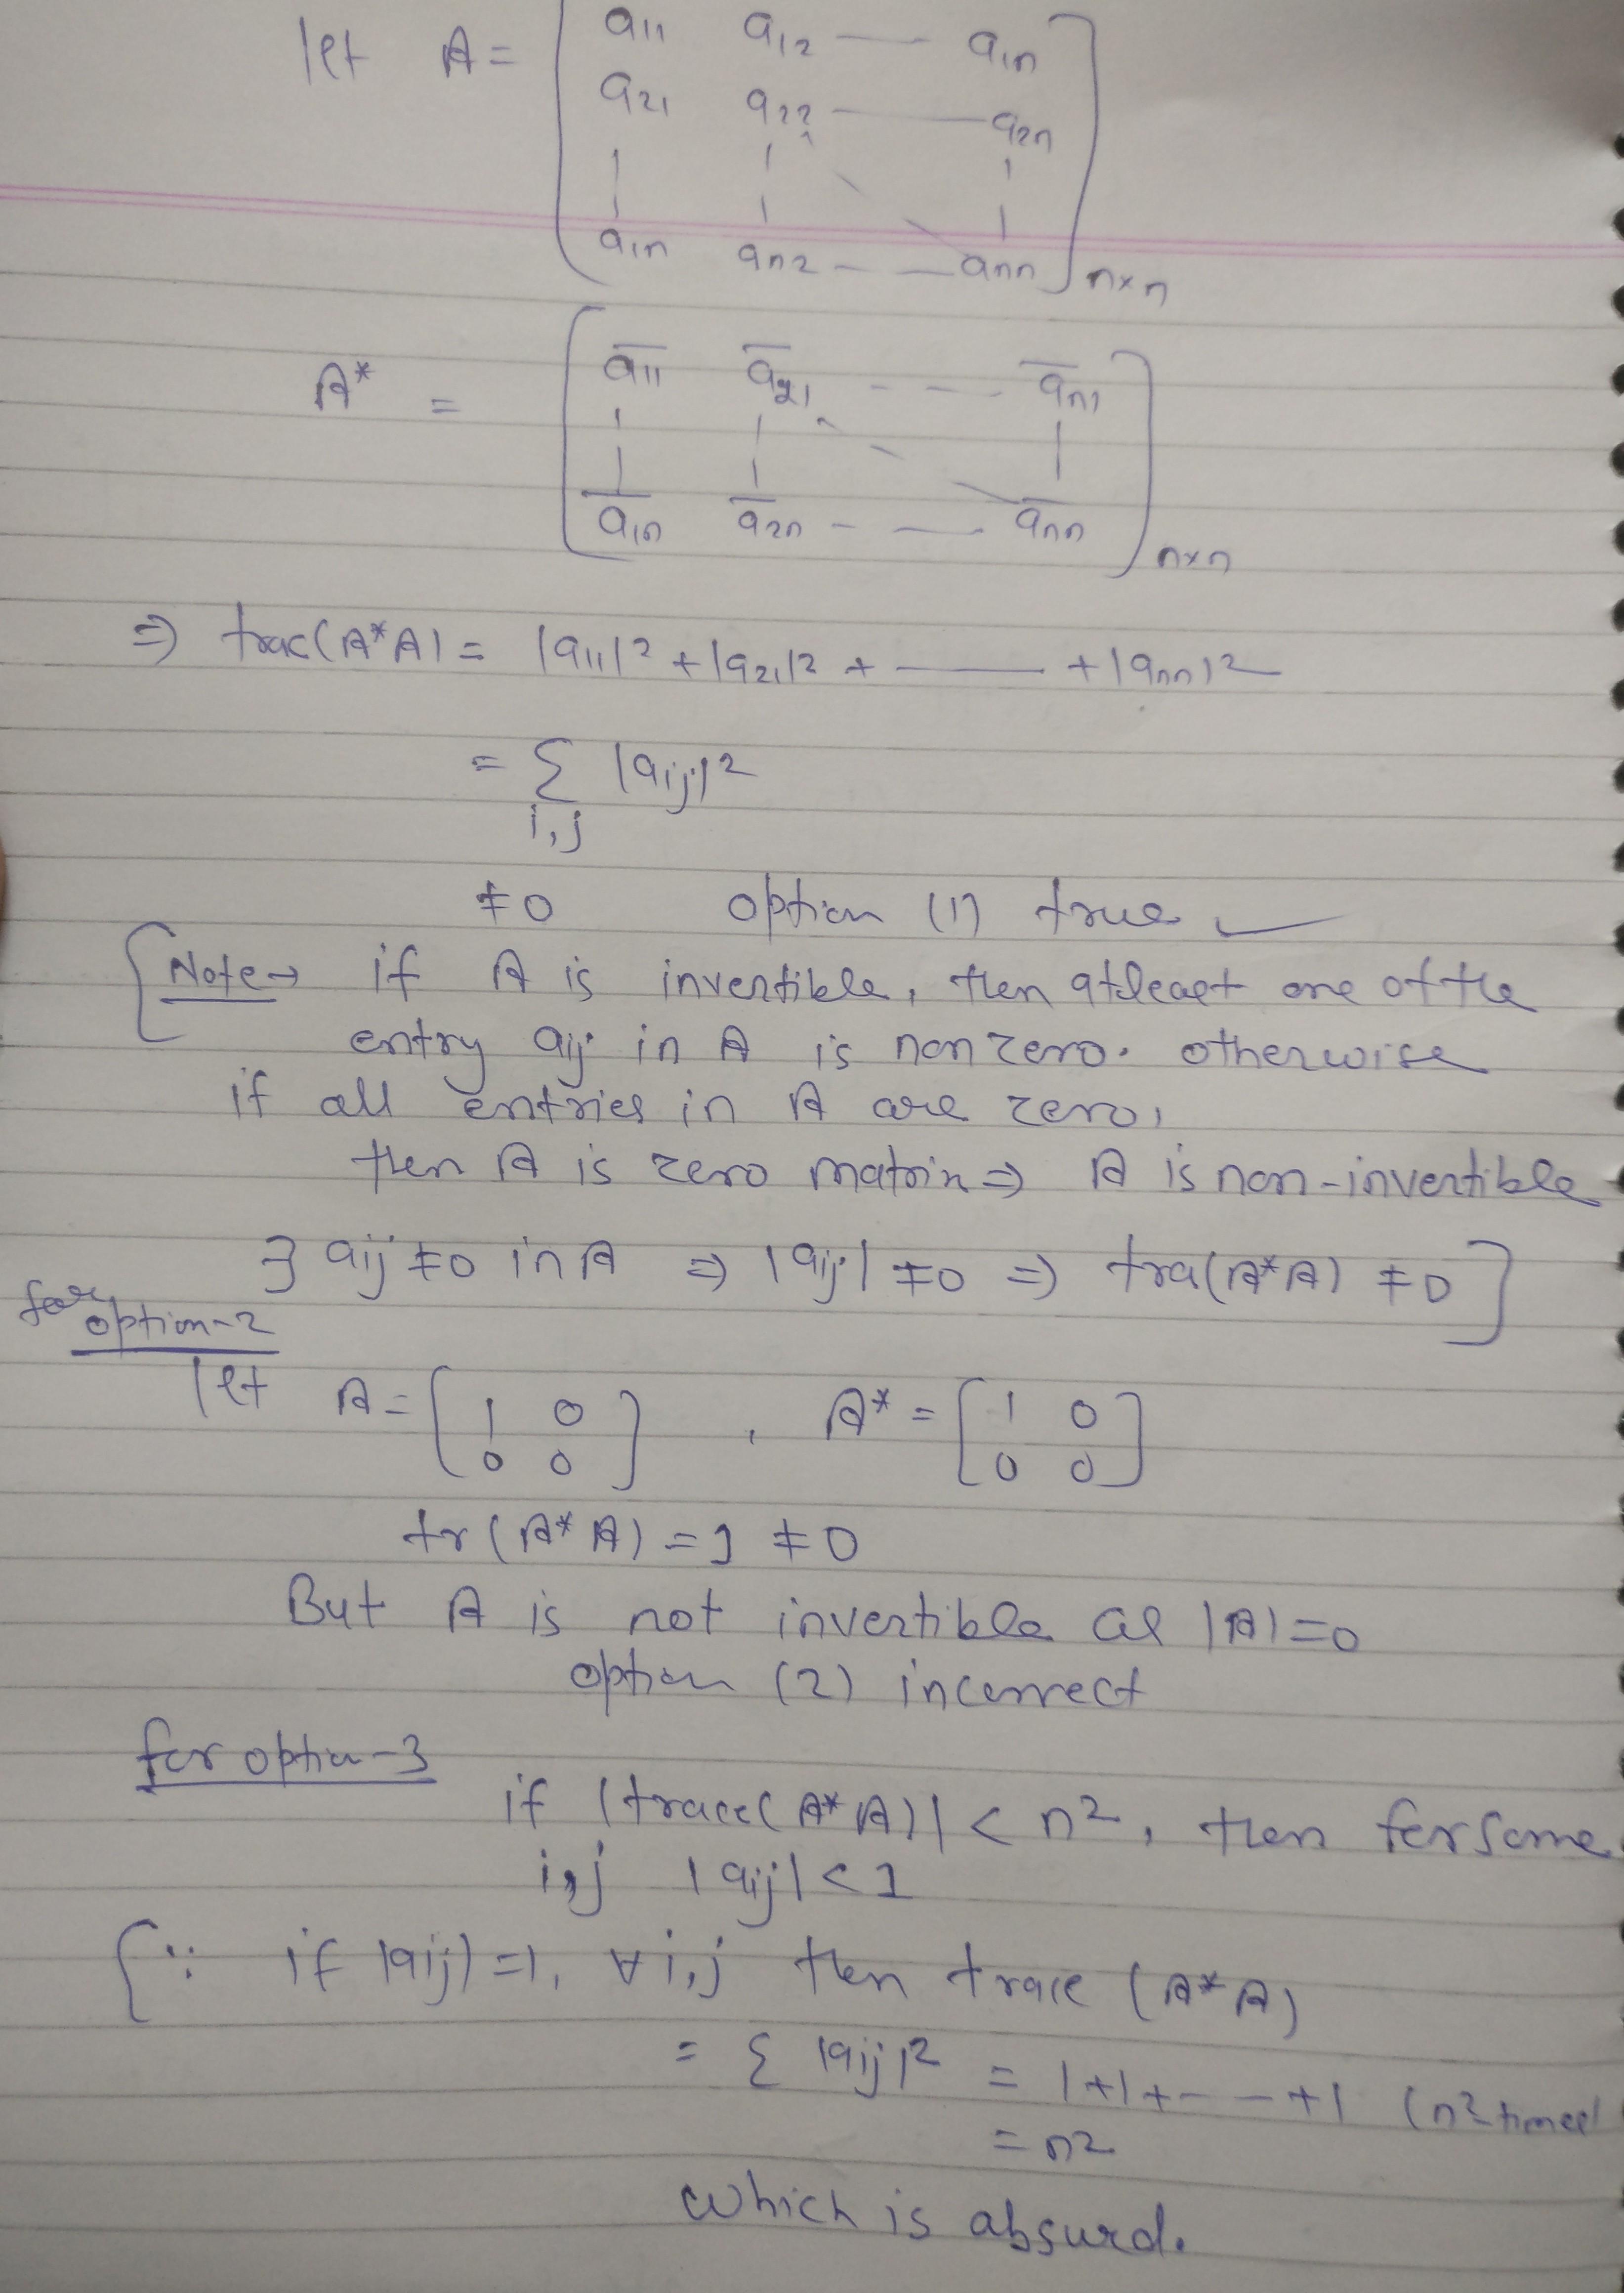 let A = [ a11 a12 — a1n
a21 a22 — a2n
a1n an2 - - ann ] n×n
A* = [ a̅11 a̅21 - - - a̅n1
a̅1n a̅2n - - a̅nn ] n×n
⇒ trac(A*A) = |a11|² + |a21|² + —— + |ann|²
= Σ |aij|²
i,j
≠0 option (1) true ✓
[Note→ if A is invertible, then atleast one of the
entry aij in A is non zero. otherwise
if all entries in A are zero,
then A is zero matrix ⇒ A is non-invertible
∃ aij ≠0 in A ⇒ |aij| ≠0 ⇒ tra(A*A) ≠0]
for option-2
let A = [ 1 0 , A* = [ 1 0
0 0 ] 0 0 ]
tr(A*A) = 1 ≠ 0
But A is not invertible as |A|=0
option (2) incorrect
for option-3
if |trace(A*A)| < n², then for some
i,j |aij| < 1
{∵ if |aij|=1, ∀ i,j then trace (A*A)
= Σ |aij|² = 1+1+- - -+1 (n² times)
= n²
which is absurd.